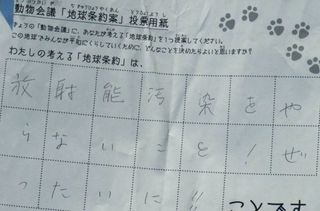 動物会議「地球条約案」投票用紙
きょうの「動物会議」に、あなたが考える「地球条約」を1つ提案してください。
この地球でみんなが平和にくらしていくために、どんなことを決めたらよいと思いますか?
わたしの考える「地球条約」は、
放射能汚染をや
らないこと!ぜ
ったいに!!
ことです